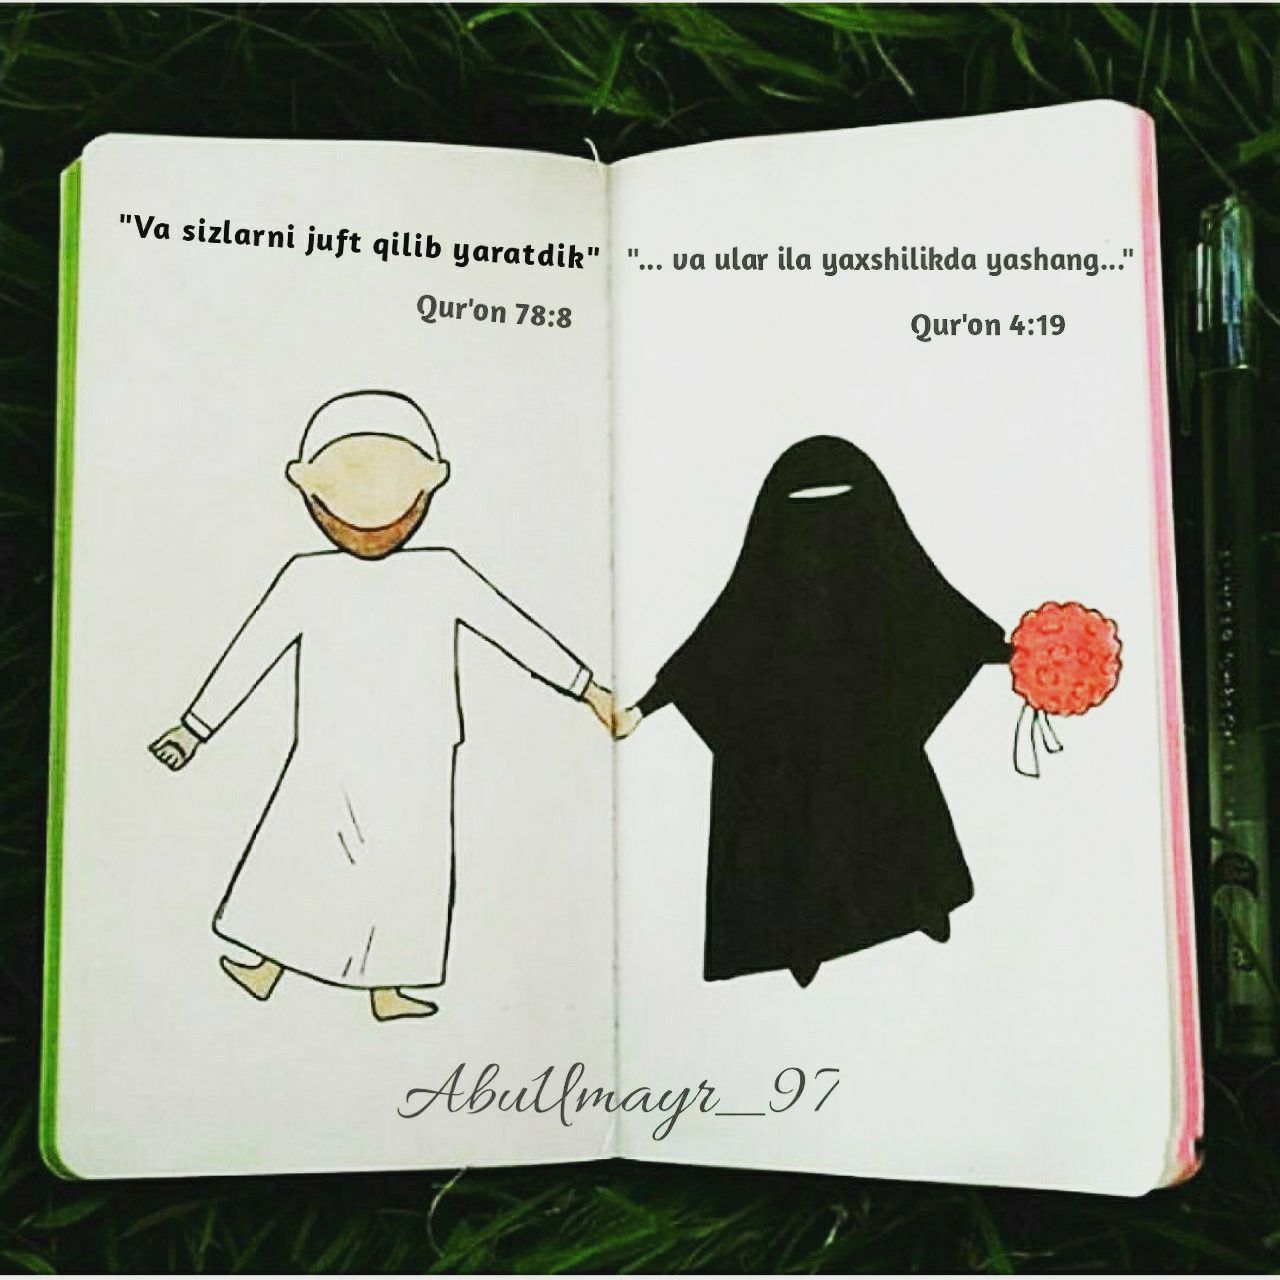 "Va sizlarni juft qilib yaratdik"
Qur'on 78:8
"... va ular ila yaxshilikda yashang..."
Qur'on 4:19
AbuUmayr_97